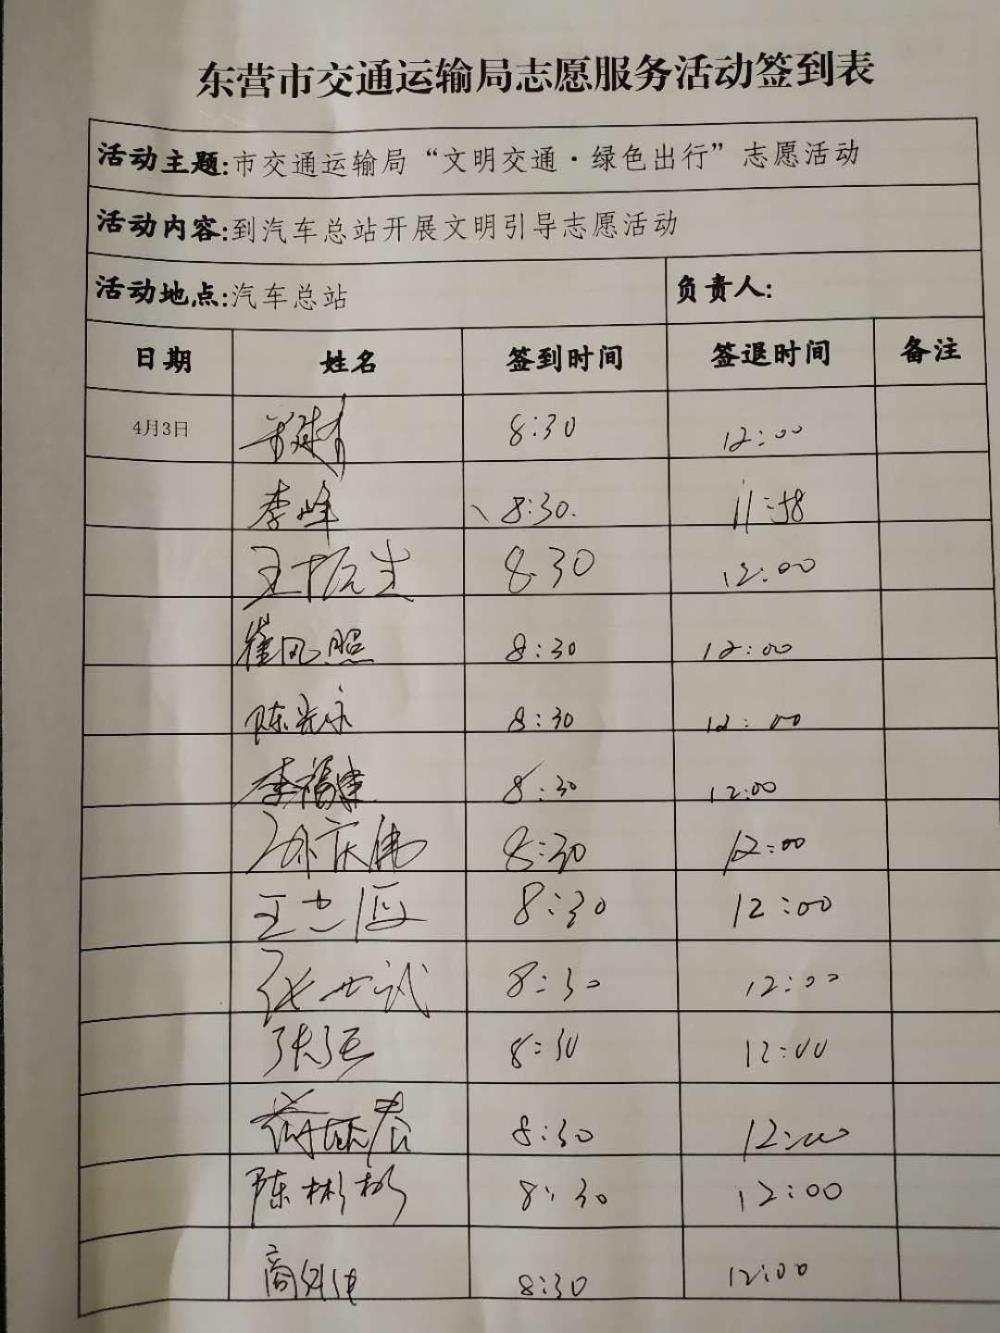 东营市交通运输局志愿服务活动签到表
活动主题:市交通运输局“文明交通·绿色出行”志愿活动
活动内容:到汽车总站开展文明引导志愿活动
活动地点:汽车总站 负责人:
日期 姓名 签到时间 签退时间 备注
4月3日 8:30 12:00
李峰 8:30. 11:58
王振生 8 30 12:00
崔风照 8:30 12:00
陈光永 8:30 12:00
李福建 8:30 12:00
庆伟 8:30 12:00
王志 8:30 12:00
张世武 8:30 12:00
张 8:30 12:00
8:30 12:00
陈彬彬 8:30 12:00
商 8:30 12:00